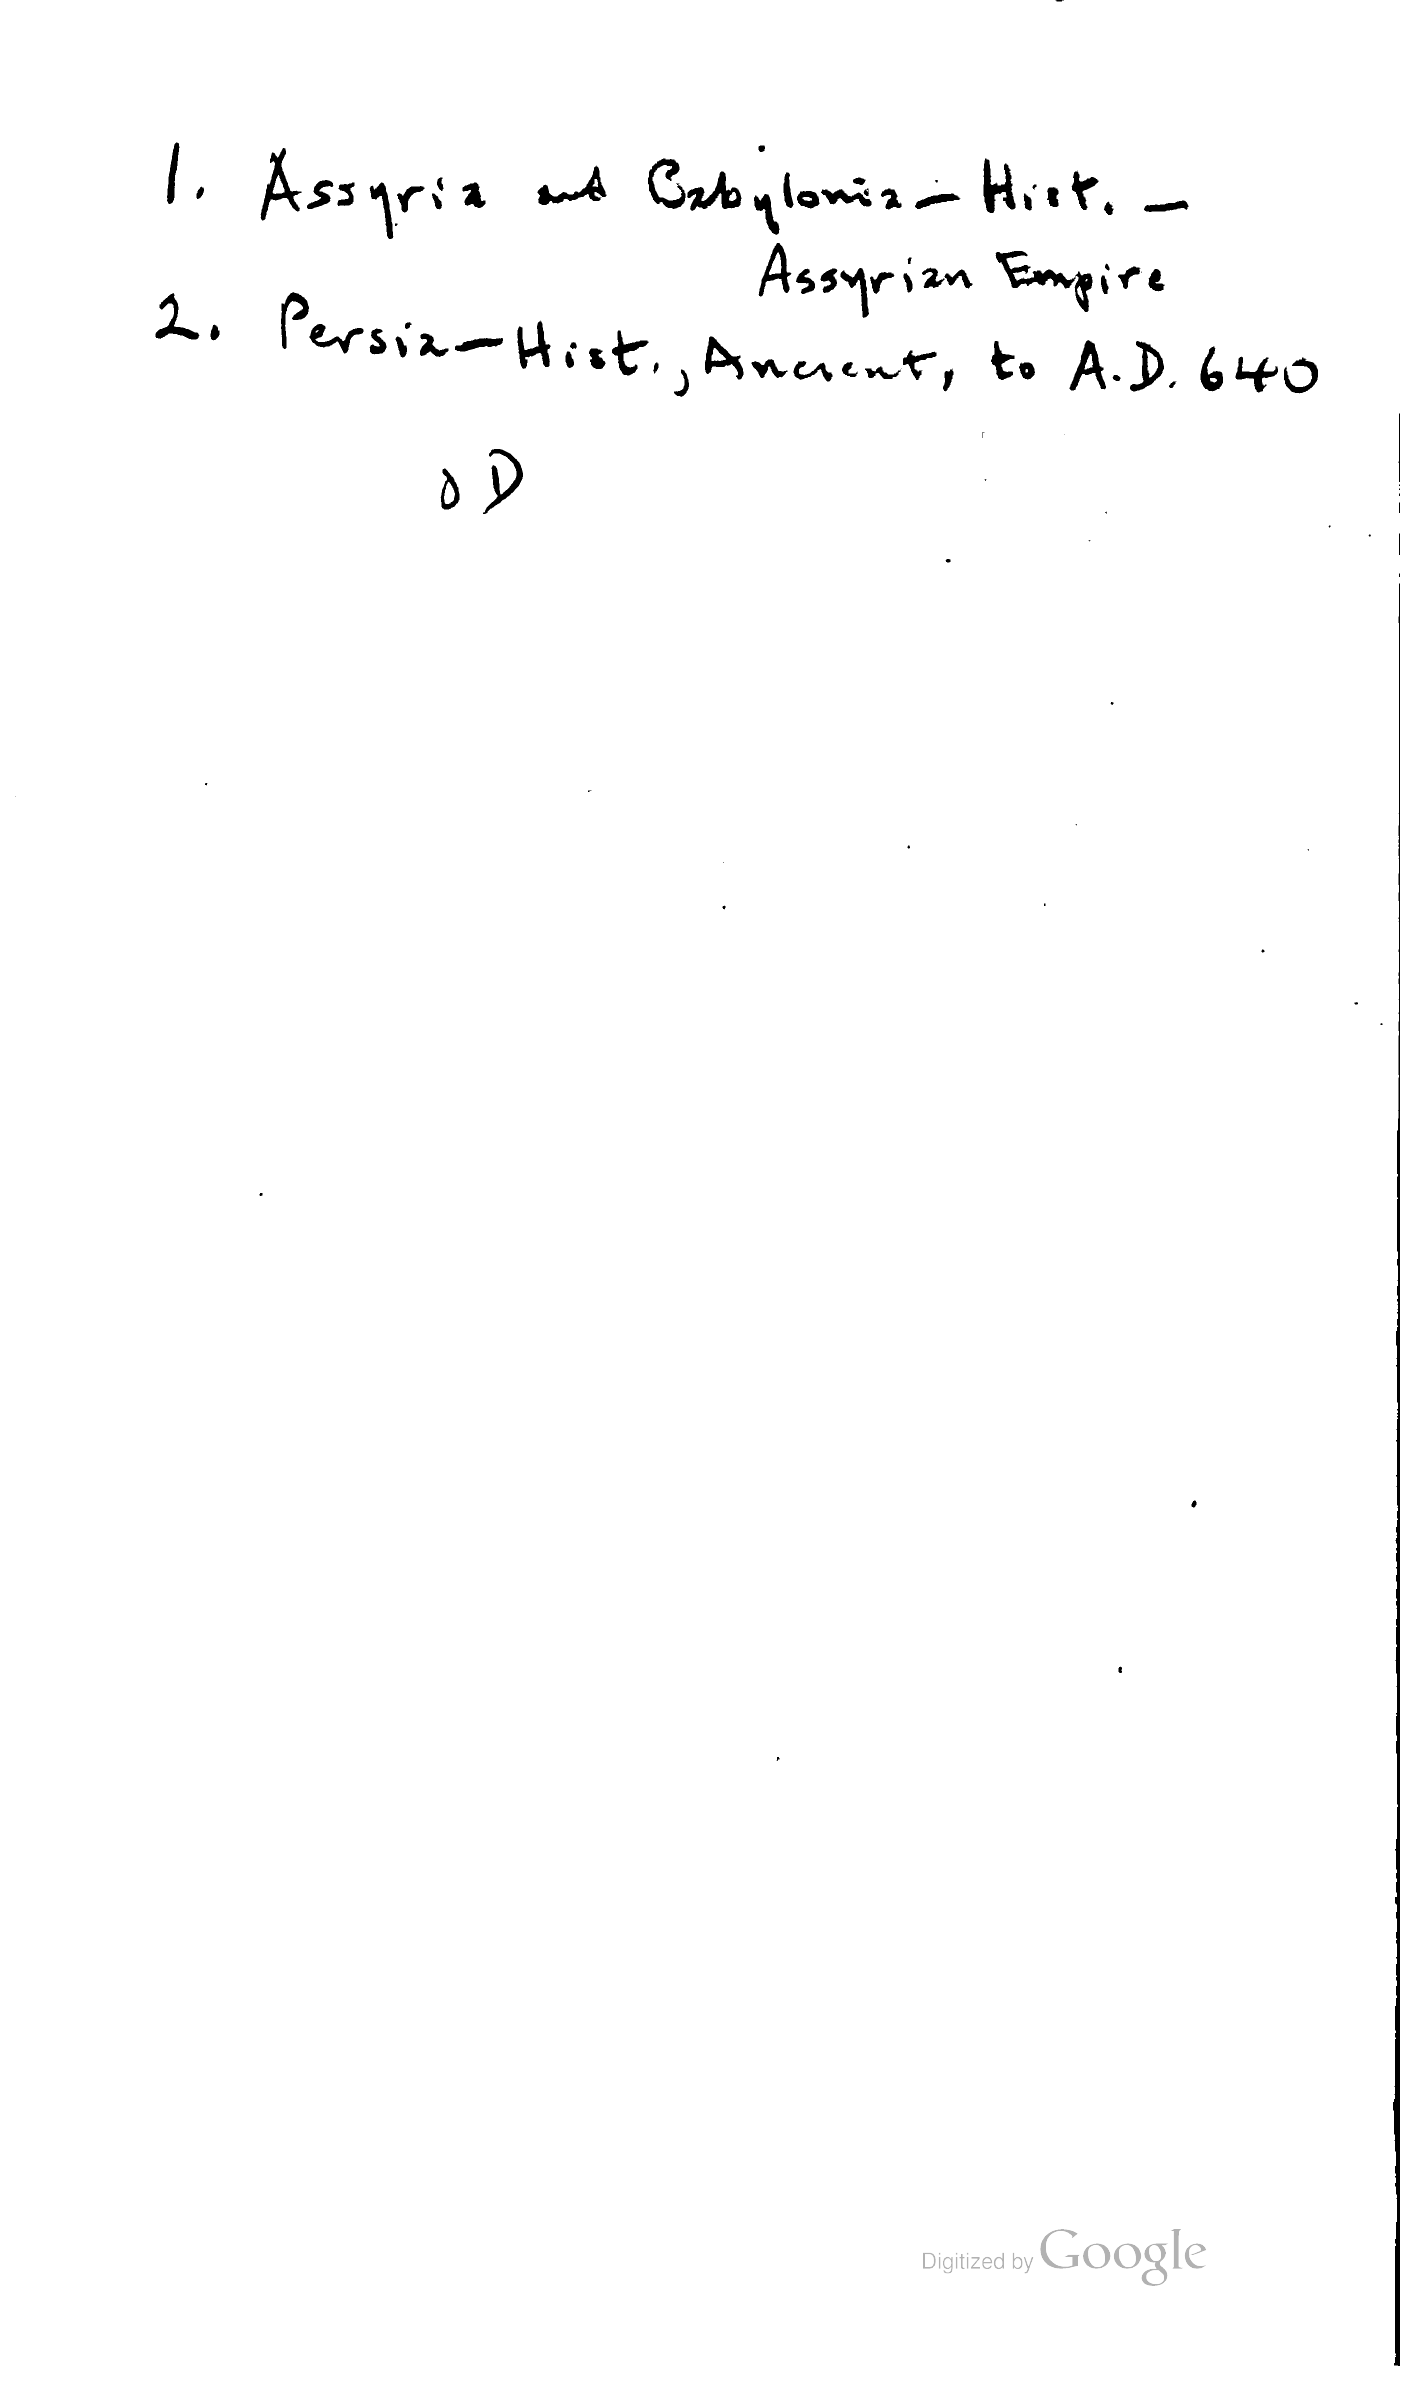 1. Assyria and Babylonia — Hist. —
Assyrian Empire
2. Persia — Hist., Ancient, to A.D. 640
Digitized by Google